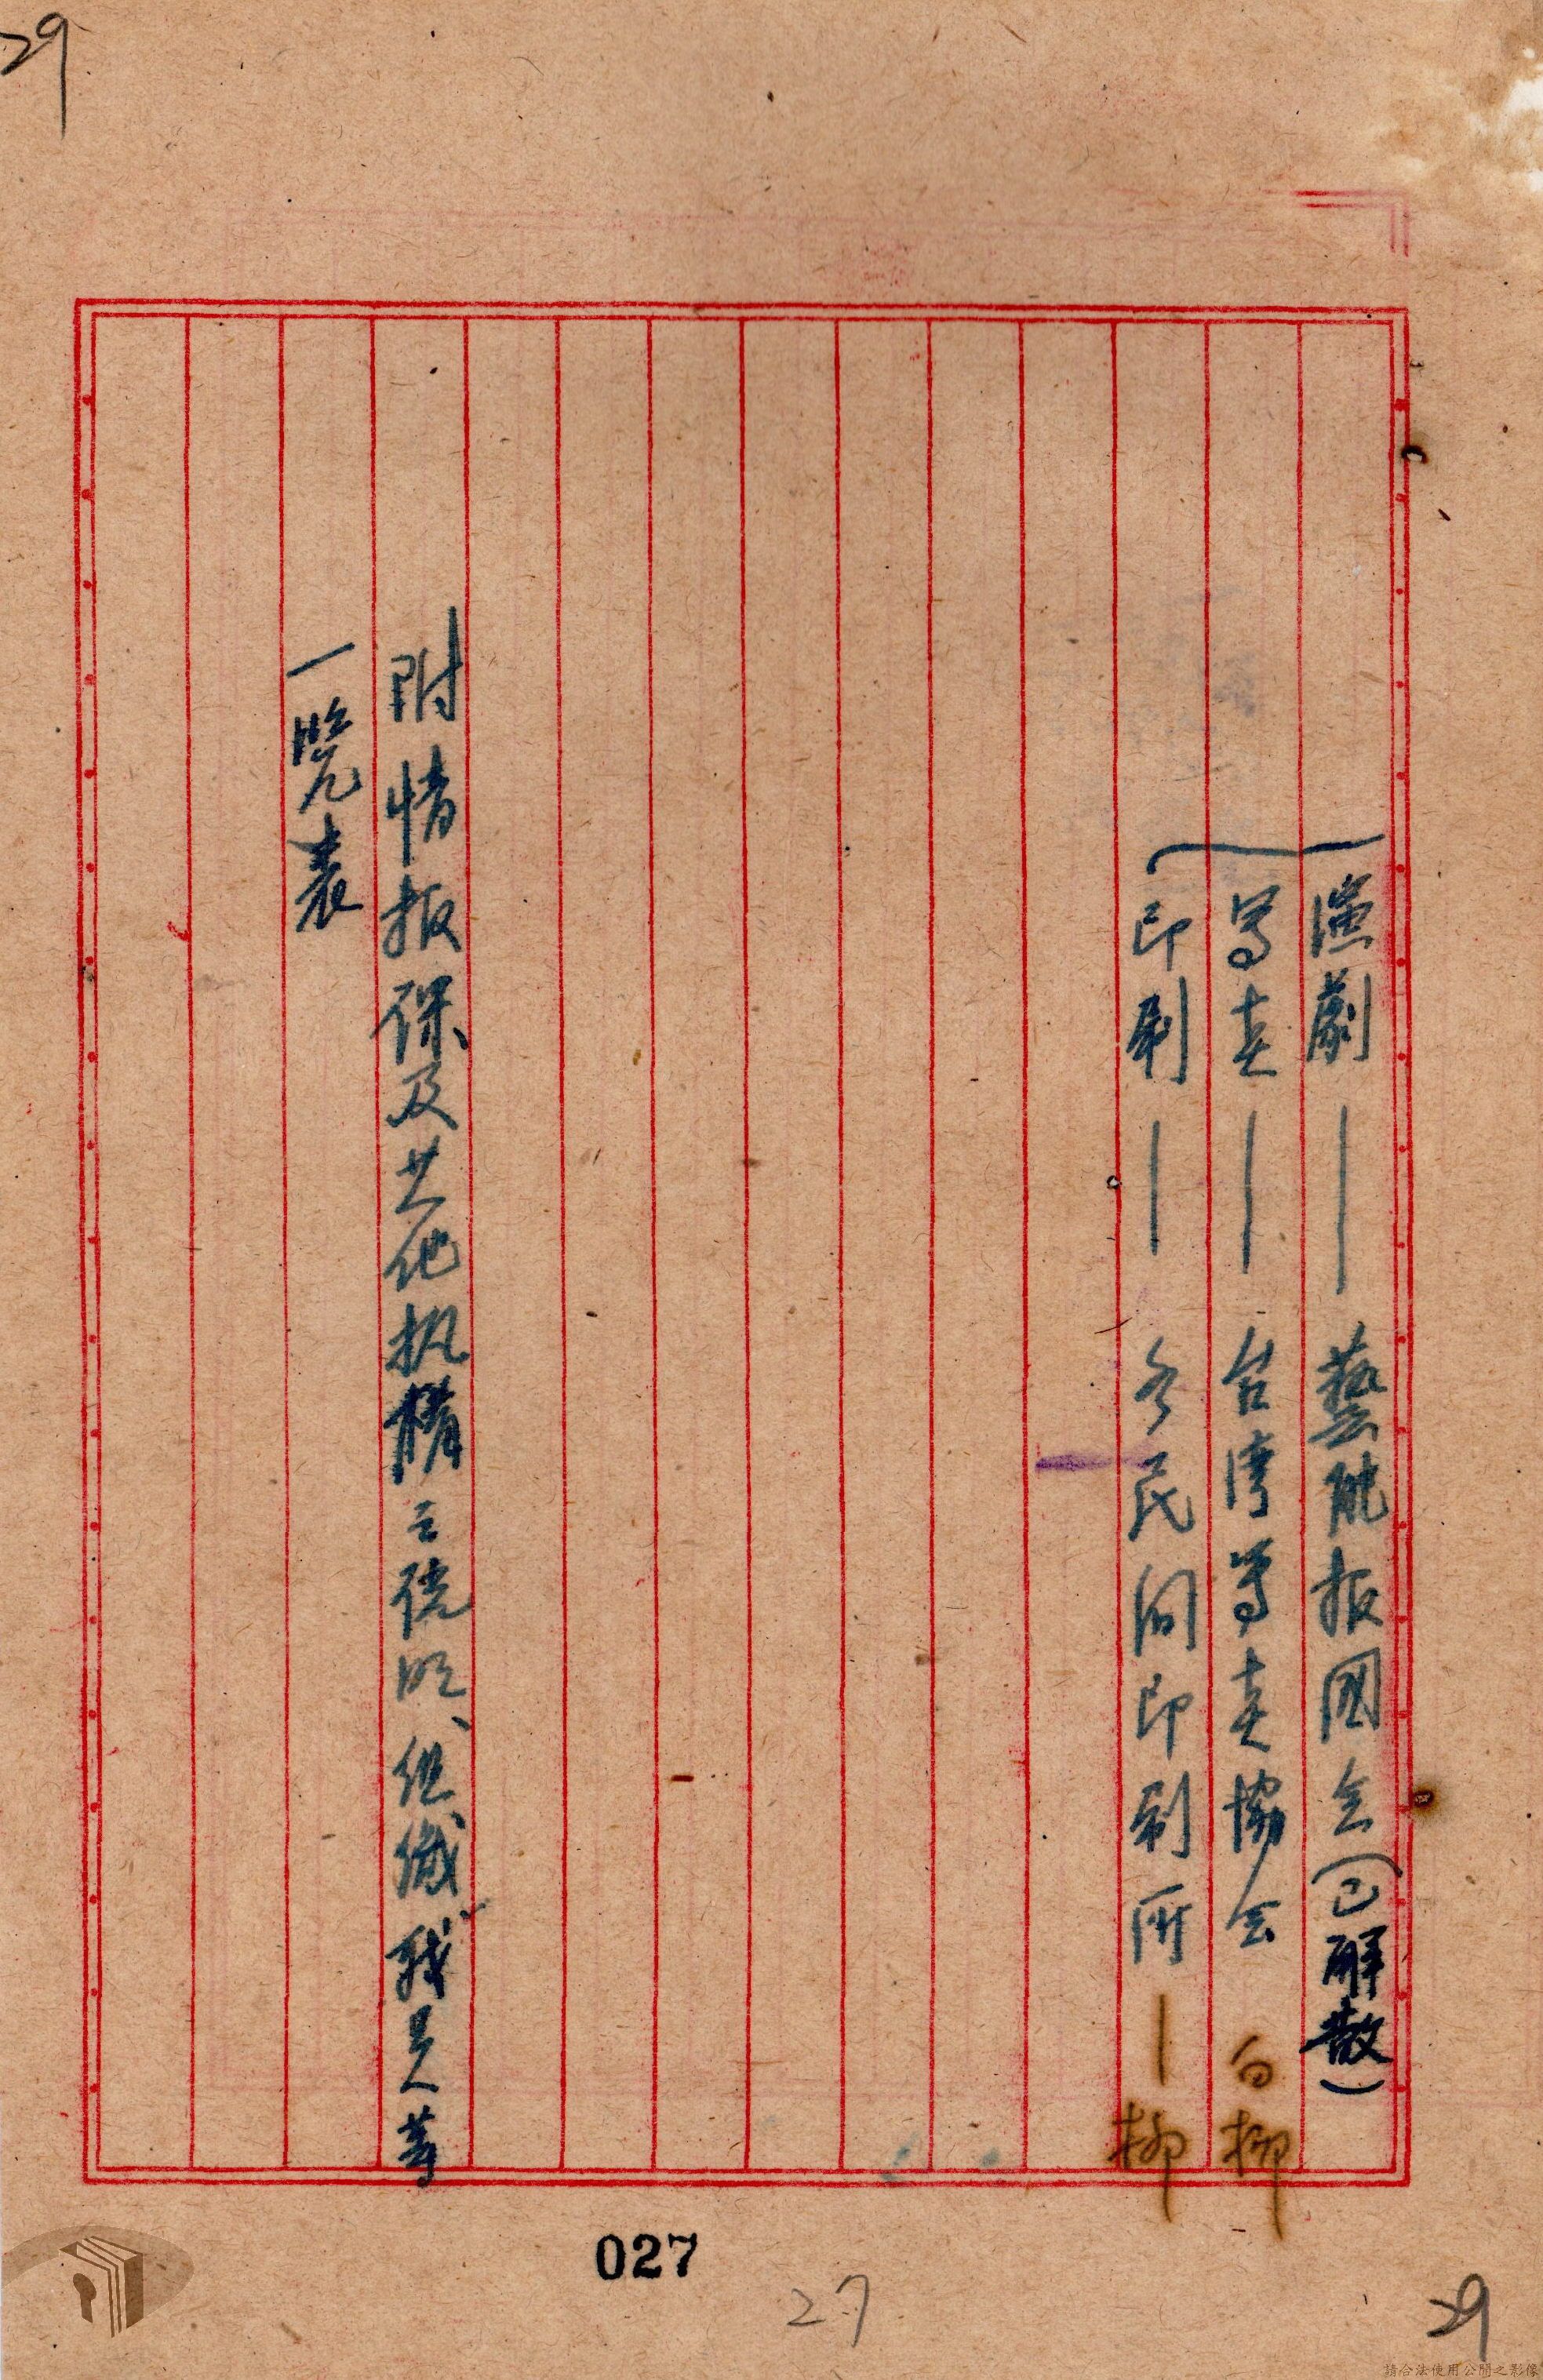 29
演劇——藝能报國会(已解散)
写真——台湾写真協会 白柳
印刷——各民间印刷所—柳
附情报保及其他机構之德明、组織、残员等
一覧表
027
27
29
請合法使用公開之影像